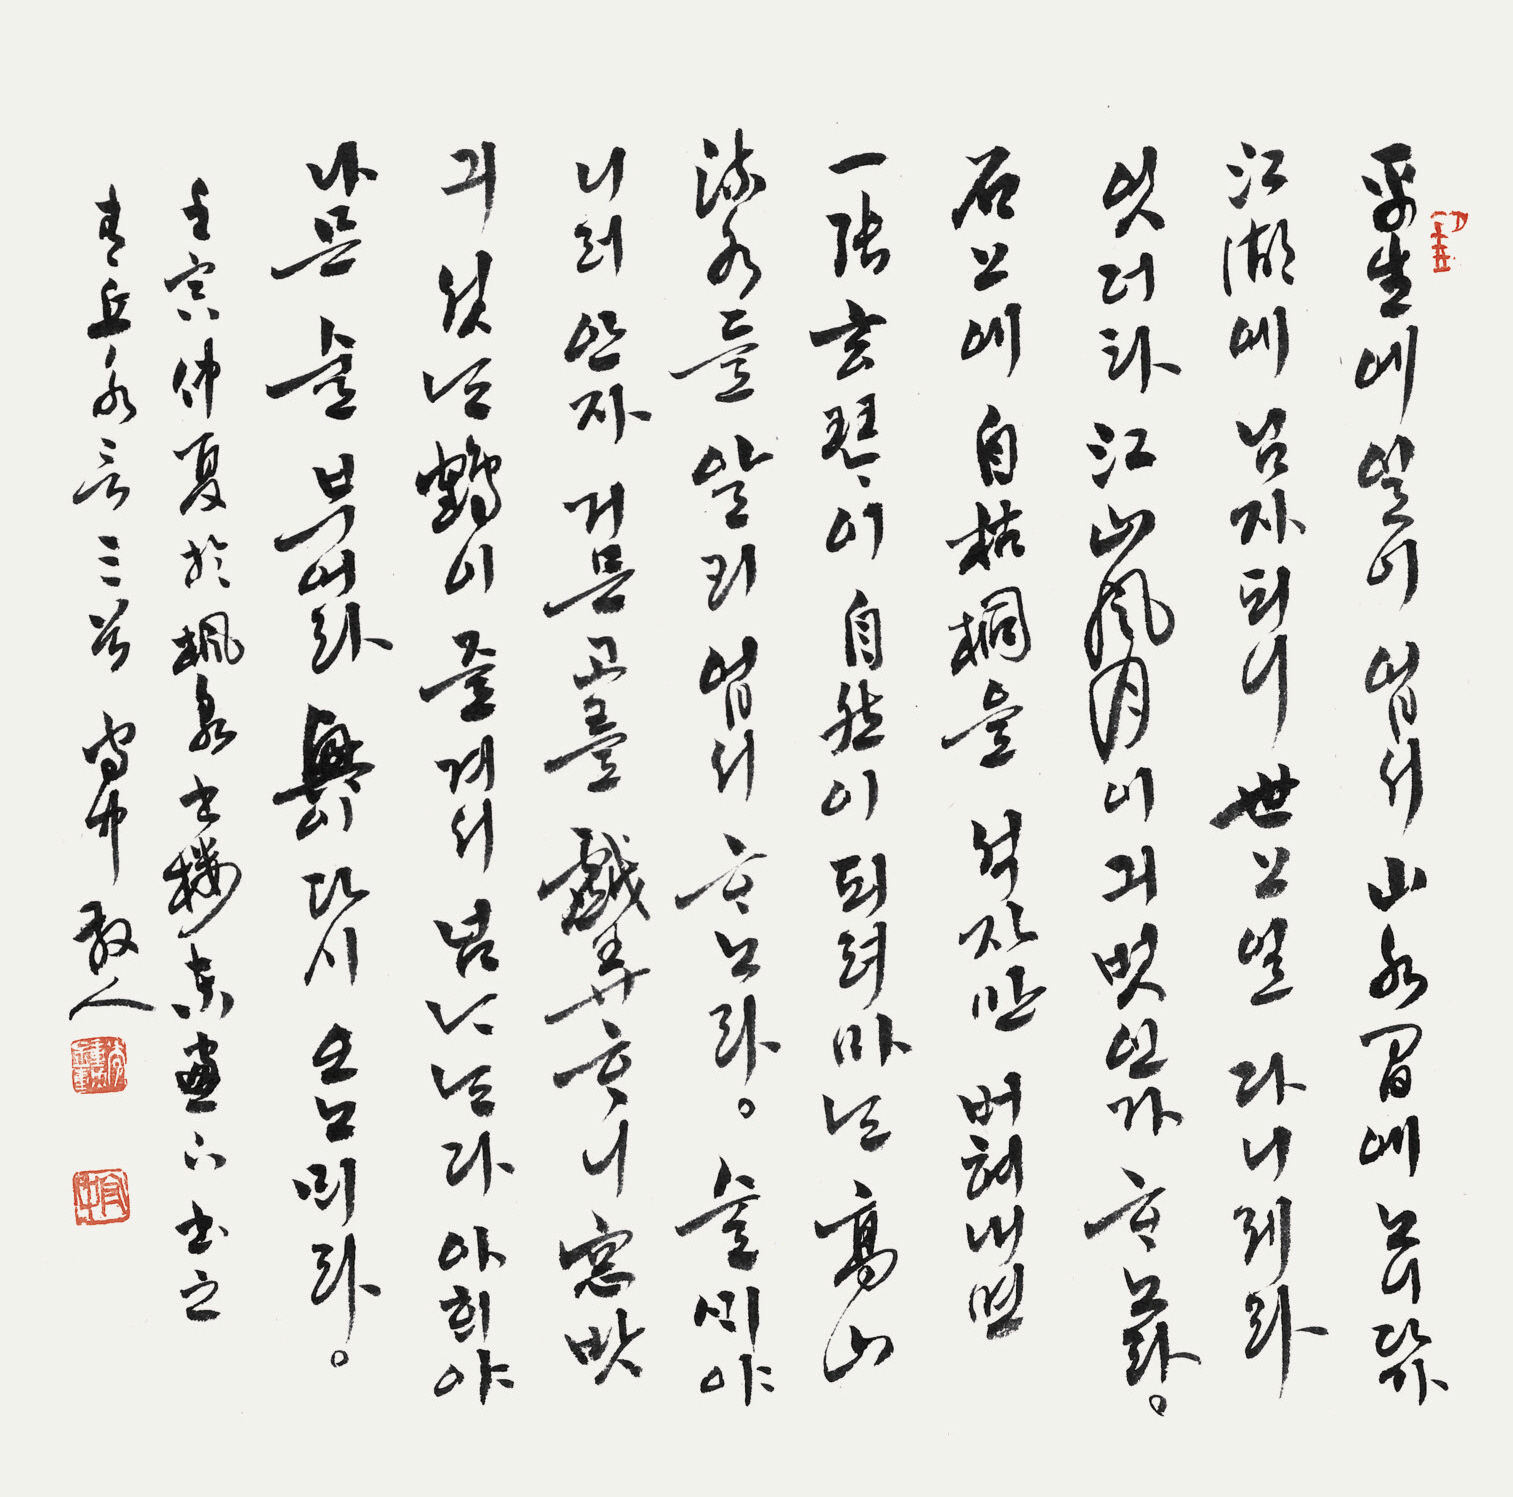 平生애 일이 업서 山水間애 노니다가
江湖애 님자되니 世上일 다 니제라
엇더타 江山風月이 긔 벗인가 ᄒᆞ노라。
石上애 自枯桐을 석자만 버혀내면
一張玄琴이 自然이 되려마ᄂᆞᆫ 高山
流水를 알리 업서 ᄒᆞ노라。 술ᄭᅵ야
니러 안자 거믄고를 戱弄ᄒᆞ니 窓밧
긔 섯ᄂᆞᆫ 鶴이 즐겨서 넘ᄂᆞᄂᆞᆫ다 아희야
나믄 술 부어라 興이 다시 오노ᄆᆡ라。
壬寅仲夏於楓泉書樓東窗下書之
靑丘永言三首 雪中散人